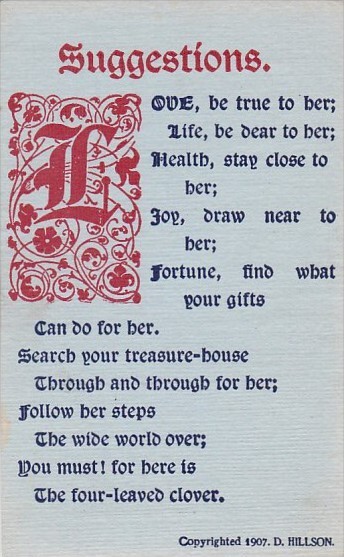 Suggestions.
LOVE, be true to her;
Life, be dear to her;
Health, stay close to
her;
Joy, draw near to
her;
Fortune, find what
your gifts
Can do for her.
Search your treasure-house
Through and through for her;
Follow her steps
The wide world over;
You must! for here is
The four-leaved clover.
Copyrighted 1907. D. HILLSON.